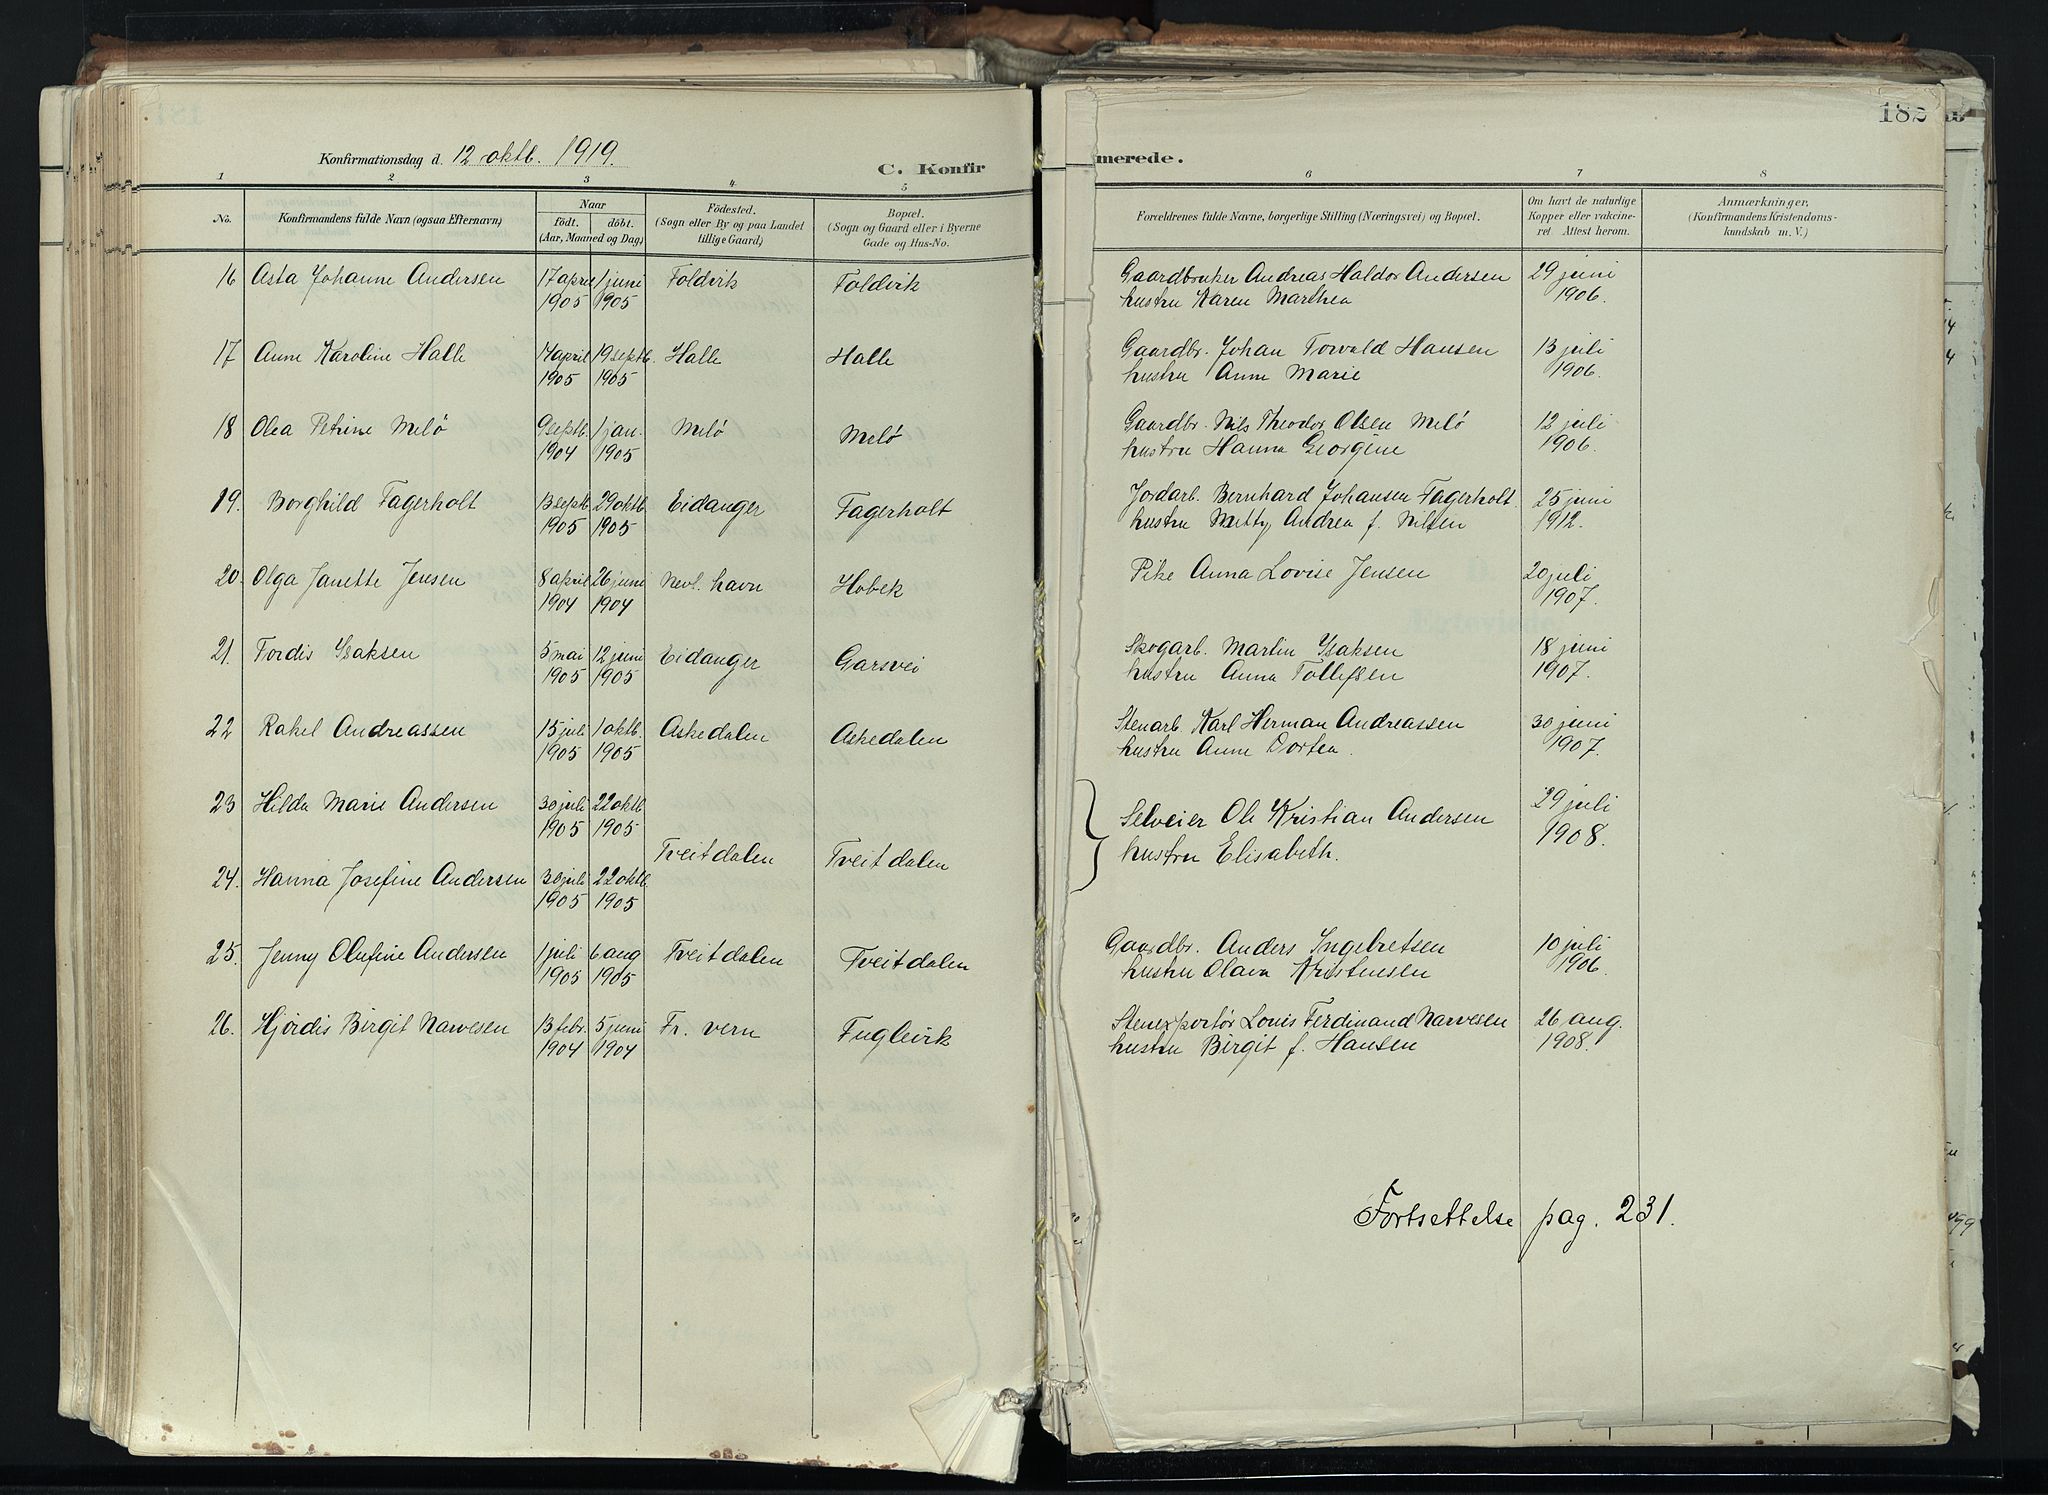 182
Konfirmationsdag d. 12 oktb. 1919.
C. Konfirmerede.
1 2 3 4 5 6 7 8
No.
Konfirmandens fulde Navn (ogsaa Efternavn)
Naar
födt. döbt.
(Aar, Maaned og Dag)
Födested.
(Sogn eller By og paa Landet
tillige Gaard)
Bopæl.
(Sogn og Gaard eller i Byerne
Gade og Hus-No.
Forældrenes fulde Navne, borgerlige Stilling (Næringsvei) og Bopæl.
Om havt de naturlige
Kopper eller vakcine-
ret Attest herom.
Anmærkninger,
(Konfirmandens Kristendoms-
kundskab m. V.)
16 Asta Johanne Andersen 17 april 1 juni Foldvik Foldvik Gaardbruker Andreas Haldor Andersen 29 juni
1905 1905 hustru Karen Marthea 1906.
17 Anne Karoline Halle 14 april 19 septb. Halle Halle Gaardbr. Johan Torvald Hansen 13 juli
1905 1905 hustru Anne Marie 1906.
18 Olea Petrine Melö 9 septb. 1 jan. Melö Melö Gaardbr. Nils Theodor Olsen Melö 12 juli
1904 1905 hustru Hanna Georgine 1906.
19. Borghild Fagerholt 13 septb. 29 oktb. Eidanger Fagerholt Jordarb. Bernhard Johansen Fagerholt. 25 juni
1905 1905 hustru Mitty Andrea f. Nilsen 1912.
20. Olga Janette Jensen 8 april 26 juni Nevl. havn Hobek Pike Anna Lovise Jensen 20 juli
1904 1904 1907.
21. Tordis Isaksen 5 mai 12 juni Eidanger Garsvei Skogarb. Martin Isaksen 18 juni
1905 1905 hustru Anna Tollefsen 1907.
22 Rakel Andreassen 15 juli 1 oktb. Askedalen Askedalen Stenarb. Karl Herman Andreassen 30 juni
1905 1905 hustru Anne Dortea. 1907.
23 Hilda Marie Andersen 30 juli 22 oktb. Selveier Ole Kristian Andersen 29 juli
1905 1905 hustru Elisabeth. 1908.
Tveitdalen Tveitdalen
24. Hanna Josefine Andersen 30 juli 22 oktb.
1905 1905
25. Jenny Olufine Andersen 1 juli 6 aug Tveitdalen Tveitdalen Gaardbr. Anders Ingebretsen 10 juli
1905 1905 hustru Olava Kristensen 1906.
26. Hjördis Birgit Narvesen 13 febr. 5 juni Fr. vern Fuglevik Stenexportör Louis Ferdinand Narvesen 26 aug.
1904 1904 hustru Birgit f. Hansen 1908.
Fortsettelse pag. 231.